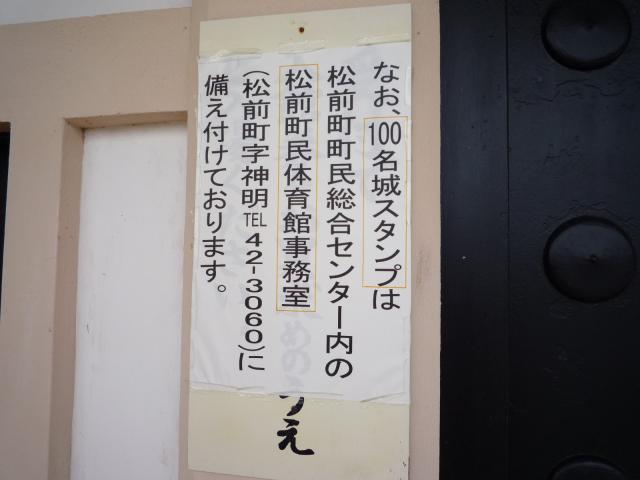 なお、100名城スタンプは
松前町町民総合センター内の
松前町民体育館事務室
(松前町字神明TEL42-3060)に
備え付けております。
のうえ